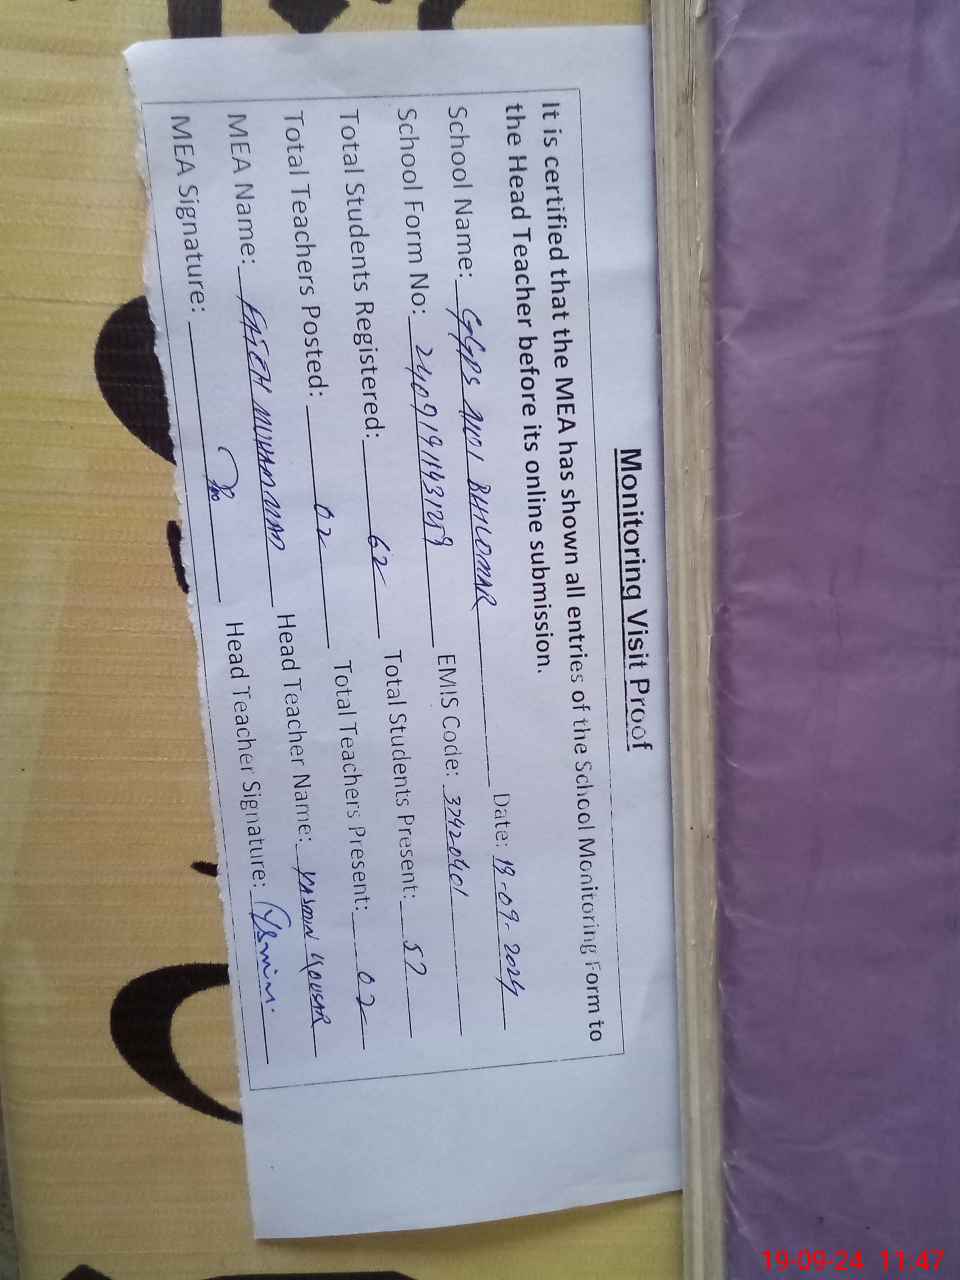 Monitoring Visit Proof
It is certified that the MEA has shown all entries of the School Monitoring Form to
the Head Teacher before its online submission.
School Name: GGPS BHILOMAR Date: 19-09-2024
School Form No: EMIS Code: 37420401
Total Students Registered: 62 Total Students Present: 52
Total Teachers Posted: 02 Total Teachers Present: 02
MEA Name: FATEH MUHAMMAD Head Teacher Name: YASMIN KOUSAR
MEA Signature: Head Teacher Signature: Ysmin.
19-09-24 11:47